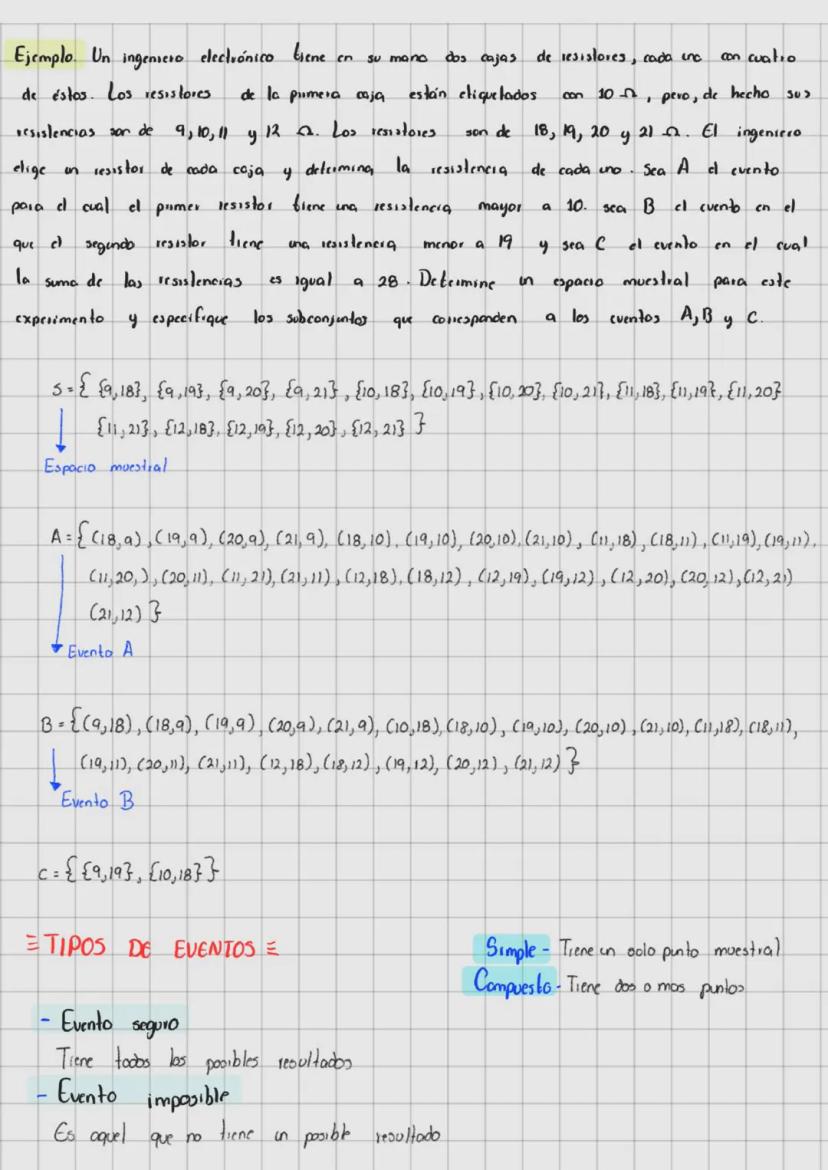 Ejemplo. Un ingeniero electrónico tiene en su mano dos cajas de resistores, cada una con cuatro
de éstos. Los resistores de la primera caja están etiquetados con 10 Ω, pero, de hecho sus
resistencias son de 9, 10, 11 y 12 Ω. Los resistores son de 18, 19, 20 y 21 Ω. El ingeniero
elige un resistor de cada caja y determina la resistencia de cada uno. Sea A el evento
para el cual el primer resistor tiene una resistencia mayor a 10. sea B el evento en el
que el segundo resistor tiene una resistencia menor a 19 y sea C el evento en el cual
la suma de las resistencias es igual a 28. Determine un espacio muestral para este
experimento y especifique los subconjuntos que corresponden a los eventos A, B y C.
S = { {9,18}, {9,19}, {9,20}, {9,21}, {10,18}, {10,19}, {10,20}, {10,21}, {11,18}, {11,19}, {11,20}
{11,21}, {12,18}, {12,19}, {12,20}, {12,21} }
Espacio muestral
A = { (18,9), (19,9), (20,9), (21,9), (18,10), (19,10), (20,10), (21,10), (11,18), (18,11), (11,19), (19,11),
(11,20,), (20,11), (11,21), (21,11), (12,18), (18,12), (12,19), (19,12), (12,20), (20,12), (12,21)
(21,12) }
Evento A
B = { (9,18), (18,9), (19,9), (20,9), (21,9), (10,18), (18,10), (19,10), (20,10), (21,10), (11,18), (18,11),
(19,11), (20,11), (21,11), (12,18), (18,12), (19,12), (20,12), (21,12) }
Evento B
C = { {9,19}, {10,18} }
≡ TIPOS DE EVENTOS ≡
Simple - Tiene un solo punto muestral
Compuesto - Tiene dos o mas puntos
- Evento seguro
Tiene todos los posibles resultados
- Evento imposible
Es aquel que no tiene un posible resultado